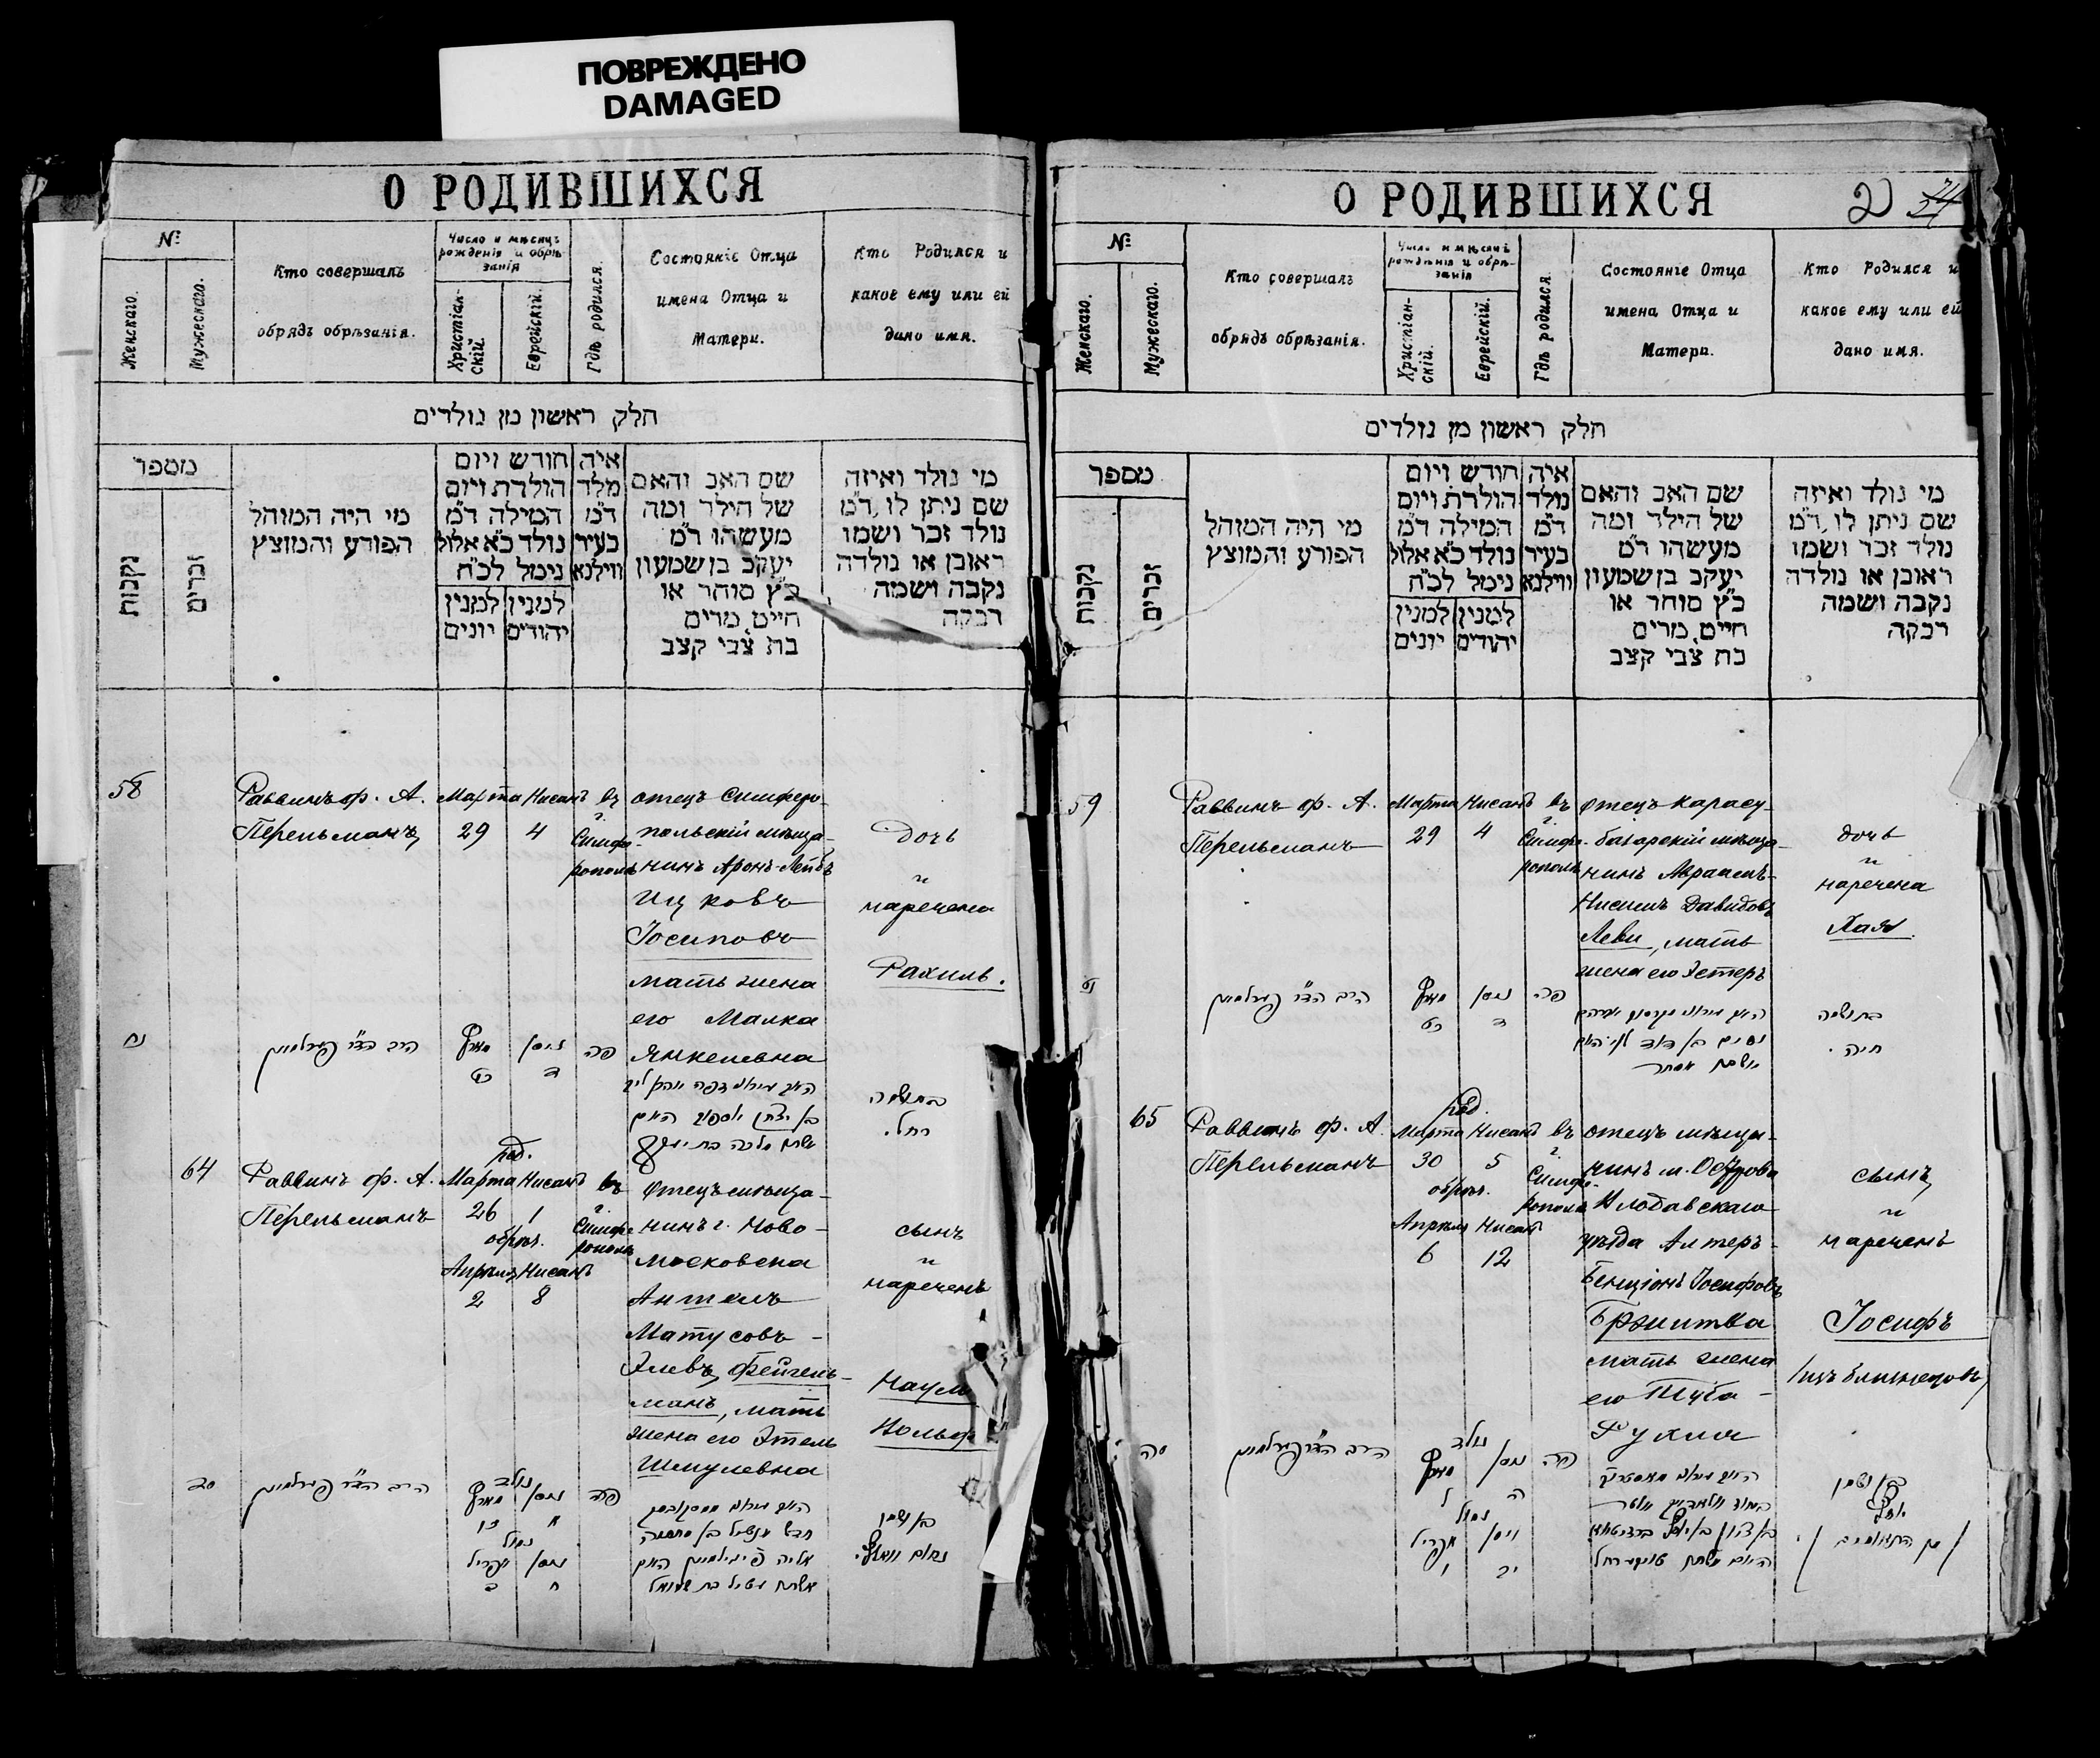 ПОВРЕЖДЕНО
DAMAGED
О РОДИВШИХСЯ
№
Женскаго.
Мужескаго.
Кто совершалъ
обрядъ обрѣзанія.
Число и мѣсяцъ
рожденія и обрѣ-
занія
Христіан-
скій.
Еврейскій.
Гдѣ родился.
Состояніе Отца
имена Отца и
Матери.
Кто Родился и
какое ему или ей
дано имя.
חלק ראשון מן נולדים
מספר
נקבות
זכרים
מי היה המוהל
הפורע והמוצץ
חודש ויום
הולדת ויום
המילה ד״מ
נולד כ״א אלול
נימל לכ״ח
למנין
יונים
למנין
יהודים
איה
נולד
ד״מ
בעיר
ווילנא
שם האב והאם
של הילד ומה
מעשהו ד״מ
יעקב בן שמעון
כ״ץ סוחר או
חייט, מרים
בת צבי קצב
מי נולד ואיזה
שם ניתן לו, ד״מ
נולד זכר ושמו
ראובן או נולדה
נקבה ושמה
רבקה
58
Раввинъ ф. А.
Перельманъ
Марта
29
Нисанъ
4
въ
г.
Симфе-
рополѣ
отецъ Симферо-
польскій мѣща-
нинъ Аронъ-Лейбъ
Ицковъ
Іосиповъ
мать жена
его Малка
Янкелевна
дочь
и
наречена
Рахиль.
נח
הרב הד״ר פערלמאן
מארץ
כט
ניסן
ד
פה
רחל.
64
Раввинъ ф. А.
Перельманъ
род.
Марта Нисанъ
26 1
обрѣз.
Апрѣля Нисанъ
2 8
въ
г.
Симфе-
рополѣ
отецъ мѣща-
нинъ г. Ново-
московска
Антель
Матусовъ-
Элевъ Фейгель-
манъ, мать
жена его Этель
Шмулевна
сынъ
и
нареченъ
Наум
Вольф
סד
הרב הד״ר פערלמאן
נולד
מארץ ניסן
נמול
אפריל ניסן
ב ח
פה
נחום וואלף.
О РОДИВШИХСЯ
2
№
Женскаго.
Мужескаго.
Кто совершалъ
обрядъ обрѣзанія.
Число и мѣсяцъ
рожденія и обрѣ-
занія
Христіан-
скій.
Еврейскій.
Гдѣ родился.
Состояніе Отца
имена Отца и
Матери.
Кто Родился и
какое ему или ей
дано имя.
חלק ראשון מן נולדים
מספר
נקבות
זכרים
מי היה המוהל
הפורע והמוצץ
חודש ויום
הולדת ויום
המילה ד״מ
נולד כ״א אלול
נימל לכ״ח
למנין
יונים
למנין
יהודים
איה
נולד
ד״מ
בעיר
ווילנא
שם האב והאם
של הילד ומה
מעשהו ד״מ
יעקב בן שמעון
כ״ץ סוחר או
חייט, מרים
בת צבי קצב
מי נולד ואיזה
שם ניתן לו, ד״מ
נולד זכר ושמו
ראובן או נולדה
נקבה ושמה
רבקה
59
Раввинъ ф. А.
Перельманъ
Марта
29
Нисанъ
4
въ
г.
Симфе-
рополѣ
отецъ Карасу-
базарскій мѣща-
нинъ Авраамъ-
Нисимъ Давидовъ
Леви, мать
жена его Эстеръ
дочь
и
наречена
Хая.
נט
הרב הד״ר פערלמאן
מארץ
כט
ניסן
ד
פה
חיה.
65
Раввинъ ф. А.
Перельманъ
род.
Марта Нисанъ
30 5
обрѣз.
Апрѣля Нисанъ
6 12
въ
г.
Симфе-
рополѣ
отецъ мѣща-
нинъ м. Острова
Влодавскаго
уѣзда Алтеръ-
Бенціонъ Іосифовъ
Бржитва
мать жена
его Тцба-
Рухля
сынъ
и
нареченъ
Іосифъ
/изъ близнецовъ/
סה
הרב הד״ר פערלמאן
נולד
מארץ ניסן
ל ה
נמול
אפריל ניסן
ו יב
פה
/מן התאומים/